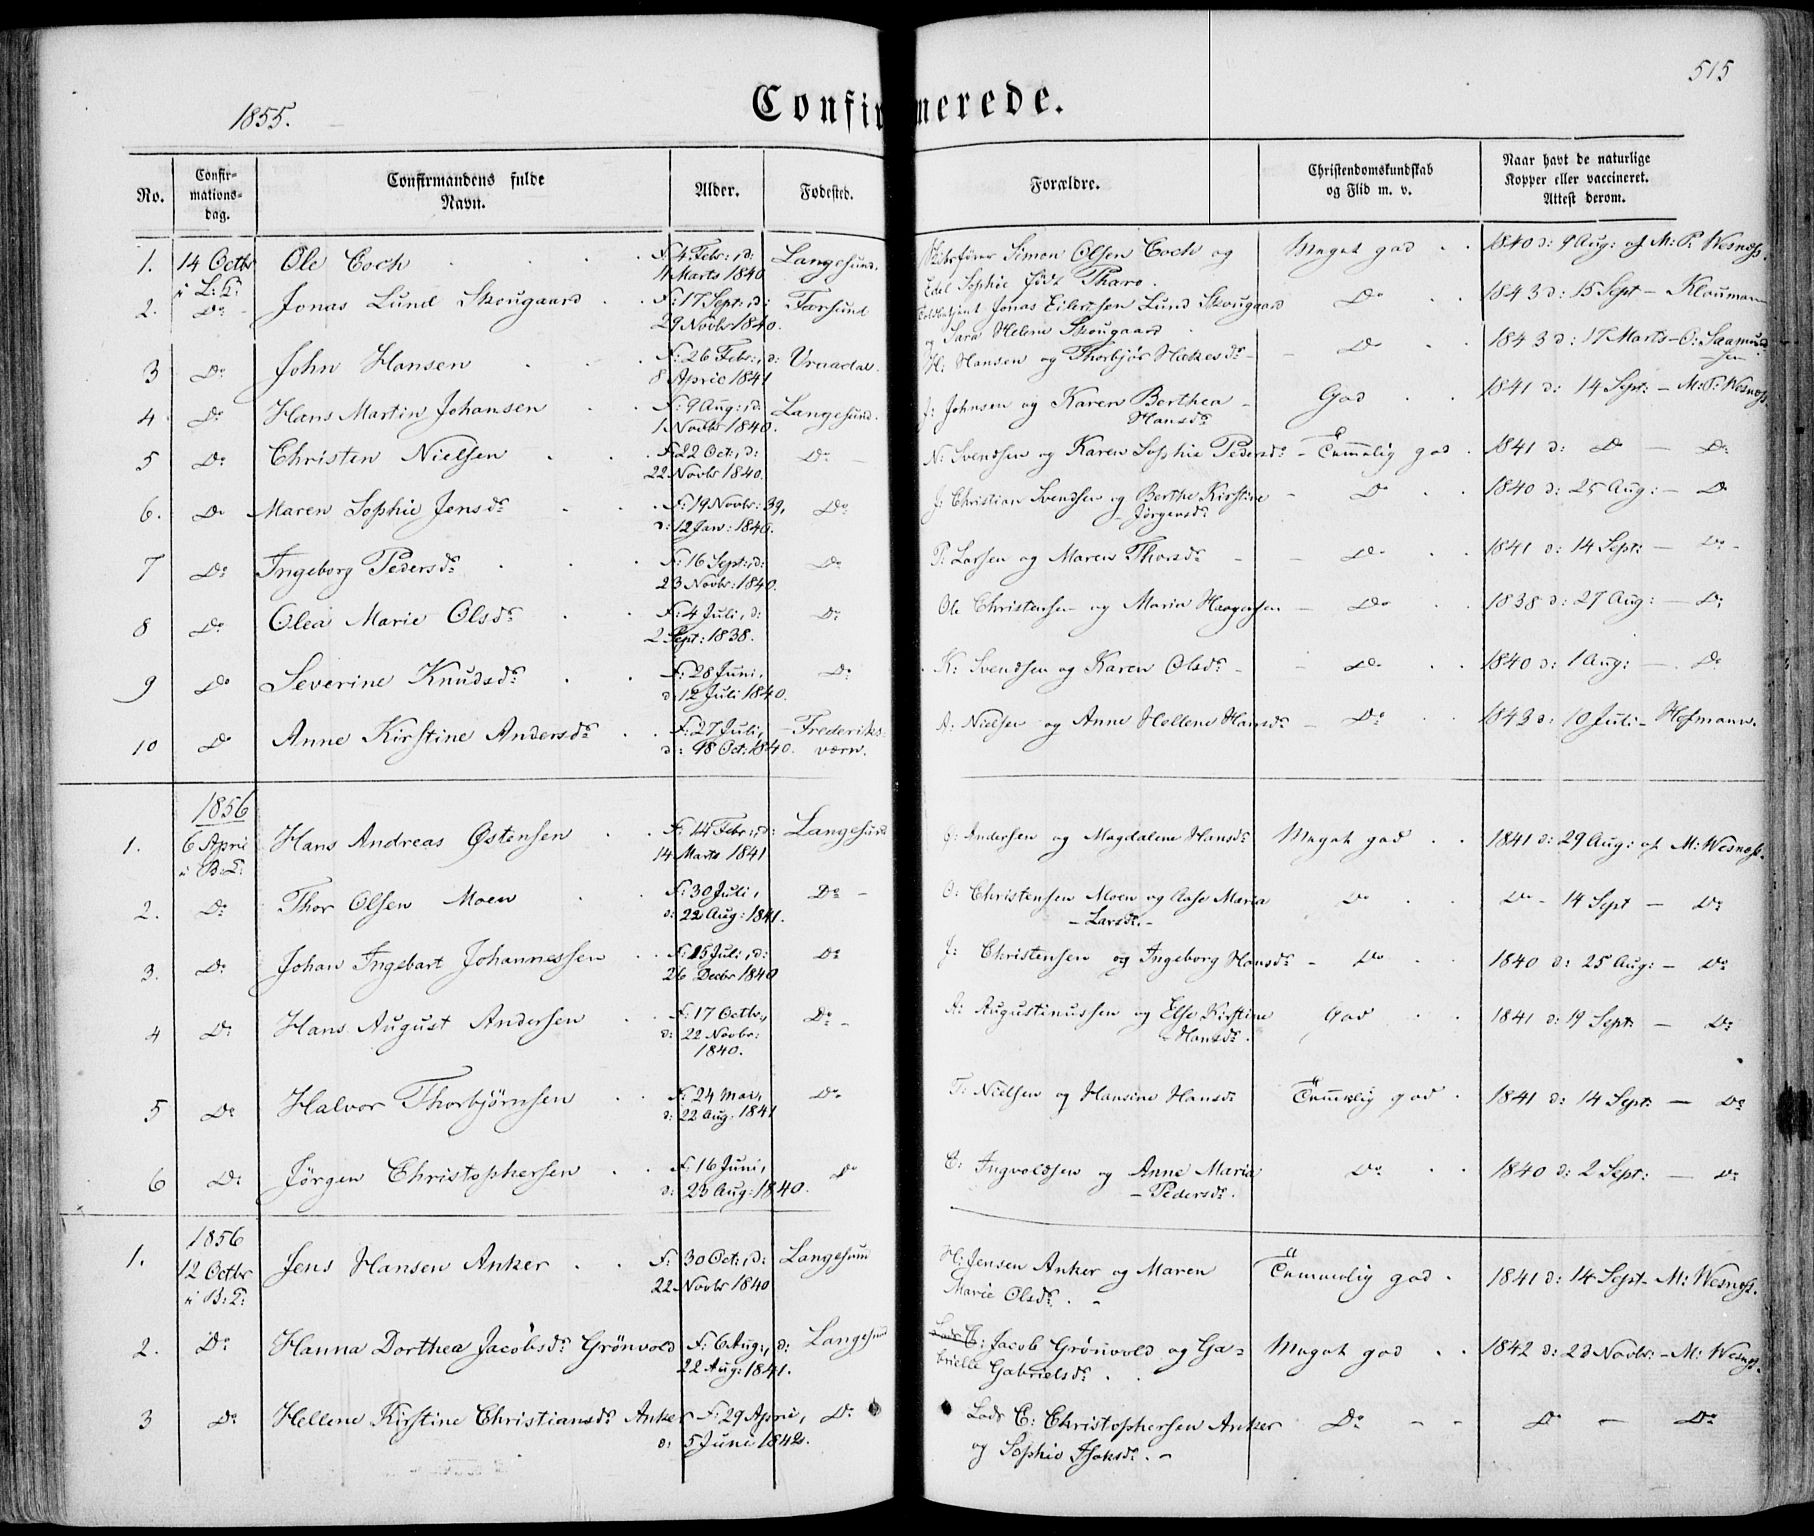 515
1855.
Confirmerede.
No.
Confir-
mations-
dag.
Confirmandens fulde
Navn.
Alder.
Fødested.
Forældre.
Christendomskundskab
og Flid m. v.
Naar havt de naturlige
Kopper eller vaccineret.
Attest derom.
1. 14 Octbr Ole Coch F: 4 Febr:, d: Langesund. Simon Olsen Coch og Meget god 1840 d: 9 Aug: af M: P. Wesnæs.
i L: C: 11 Marts 1840 Edel Sophie født Tharo.
2. Do Jonas Lund Skougaard F: 17 Sept:, d: Farsund Toldbetjent Jonas Eilertsen Lund Skougaard Do 1843 d: 15 Sept - Klouman
29 Novbr 1840. og Sara Helene Skougaard
3 Do John Hansen F: 26 Febr:, d: Vraadal. H: Hansen og Thorbjør Hækesdr - Do 1843 d: 17 Marts - O: Saamund
8 April 1841 sen
4. Do Hans Martin Johansen F: 9 Aug:, d: Langesund. J: Johnsen og Karen Berthea God 1841 d: 14 Sept: - M: P: Wesnæs
1 Novbr 1840. Hansdr
5 Do Christen Nielsen F: 22 Oct:, d: Do N: Svendsen og Karen Sophie Pedersdr - Temmelig god 1841 d: Do - Do
22 Novbr 1840.
6. Do Maren Sophie Jensdr F: 19 Novbr: 39, Do J: Christian Svendsen og Berthe Kirstine Do 1840 d: 25 Aug: - Do
d: 12 Jan: 1840. Jørgensdr
7 Do Ingeborg Pedersdr F: 16 Sept:, d: Do P: Larsen og Maren Thorsdr Do 1841 d: 14 Sept: - Do
23 Novbr: 1840.
8 Do Olea Marie Olsdr F: 4 Juli, d: Do Ole Christensen og Maria Haagensen Do 1838 d: 27 Aug: - Do
2 Sept: 1838.
9 Do Severine Knudsdr F: 28 Juni, Do K: Svendsen og Karen Olsdr Do 1840 d: 1 Aug: - Do
d: 12 Juli 1840.
10 Do Anne Kirstine Andersdr F: 27 Juli, Frederiks- A: Nielsen og Anne Hellene Hansdr - Do 1843 d: 10 Juli - Hofmann.
d: 18 Oct: 1840. værn.
1856
1. 6 April Hans Andreas Østensen F: 14 Febr:, d: Langesund Ø: Andersen og Magdalene Hansdr Meget god 1841 d: 29 Aug: af M: Wesnæs.
i B: C: 14 Marts 1841
2. Do Thor Olsen Moen F: 30 Juli, Do O: Christensen Moen og Aase Maria Do Do - 14 Sept - Do
d: 22 Aug: 1841. - Larsdr. -
3. Do Johan Ingebart Johannessen F: 15 Juli, d: Do J: Christensen og Ingeborg Hansdr - Do 1840 d: 25 Aug: - Do
26 Decbr 1840
4 Do Hans August Andersen F: 17 Octbr, Do A: Augustinussen og Else Kirstine God 1841 d: 19 Sept: - Do
d: 22 Novbr: - Hansdr.
1840.
5 Do Halvor Thorbjørnsen F: 24 Mai, Do T: Nielsen og Hansine Hansdr Temmelig god 1841 d: 14 Sept: - Do
d: 22 Aug. 1841
6 Do Jørgen Christophersen F: 16 Juni, Do C: Ingvoldsen og Anne Maria Do 1840 d: 2 Sept: - Do
d: 23 Aug: 1840. - Pedersdr.
1856
1. 12 Octbr Jens Hansen Anker F: 30 Oct:, d: Langesund H: Jensen Anker og Maren Temmelig god 1841 d: 14 Sept - M: Wesnæs.
i B: C: 22 Novbr 1840 Marie Olsdr. -
2. Do Hanna Dorthea Jacobsdr Grönvold F: 6 Aug:, d: Langesund Jacob Grönvold og Ga= Meget god 1842 d: 23 Novbr: - M: Wesnæs.
22 Aug: 1841. brielle Gabrielsdr.
3 Do Hellene Kirstine Christiansdr Anker F: 29 April, Do Lods C: Christophersen Anker Do Do - Do
d: 5 Juni 1842. og Sophie Isaksdr. -